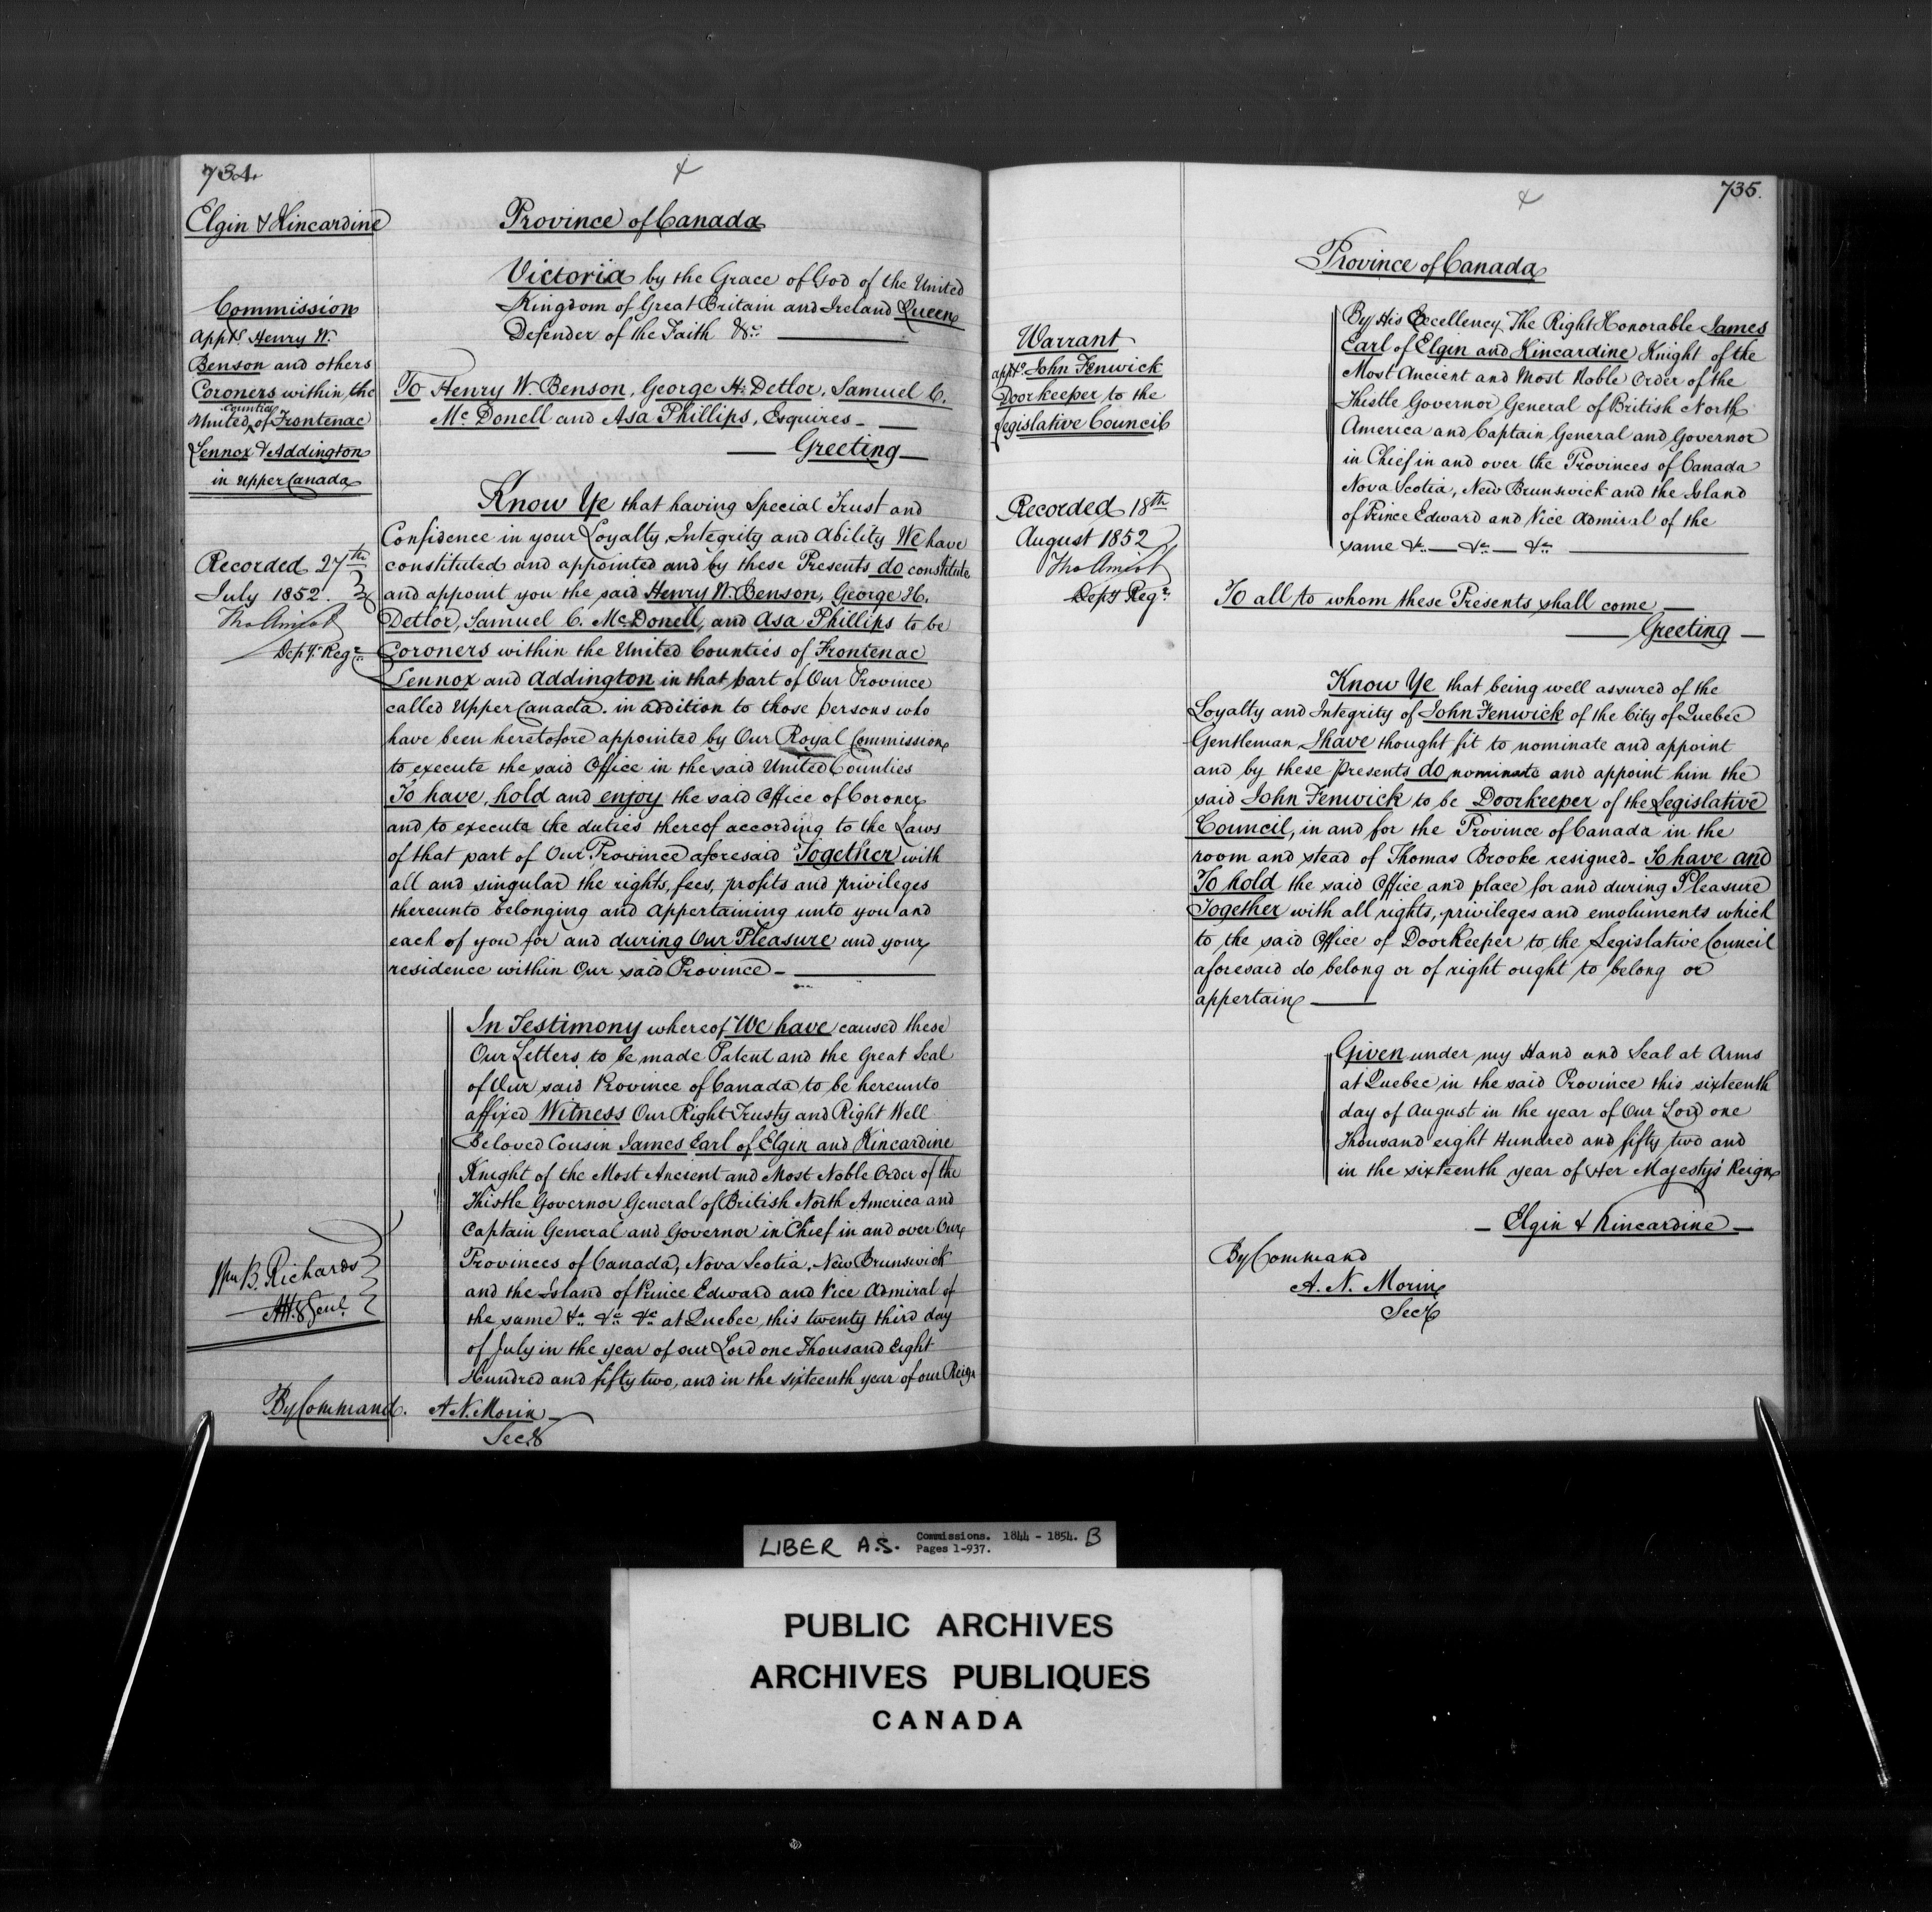 734.
Elgin & Kincardine
Commission
App.g Henry W.
Benson and others
Coroners within the
United Counties of Frontenac
Lennox & Addington
in Upper Canada
Recorded 27th
July 1852.
Tho Amiot
Depy. Regr.
Province of Canada
Victoria by the Grace of God of the United
Kingdom of Great Britain and Ireland Queen
Defender of the Faith &c.
To Henry W. Benson, George H. Detlor, Samuel C.
Mc Donell and Asa Phillips, Esquires
Greeting
Know Ye that having Special Trust and
Confidence in your Loyalty, Integrity and Ability We have
constituted and appointed and by these Presents do constitute
and appoint you the said Henry W. Benson, George H.
Detlor, Samuel C. McDonell, and Asa Phillips to be
Coroners within the United Counties of Frontenac
Lennox and Addington in that part of Our Province
called Upper Canada. in addition to those persons who
have been heretofore appointed by Our Royal Commission
to execute the said Office in the said United Counties
To have, hold and enjoy the said Office of Coroner
and to execute the duties thereof according to the Laws
of that part of Our Province aforesaid Together with
all and singular the rights, fees, profits and privileges
thereunto belonging and appertaining unto you and
each of you for and during Our Pleasure and your
residence within Our said Province
In Testimony whereof We have caused these
Our Letters to be made Patent and the Great Seal
of Our said Province of Canada to be hereunto
affixed Witness Our Right Trusty and Right Well
Beloved Cousin James Earl of Elgin and Kincardine
Knight of the Most Ancient and Most Noble Order of the
Thistle Governor General of British North America and
Captain General and Governor in Chief in and over Our
Provinces of Canada, Nova Scotia, New Brunswick
and the Island of Prince Edward and Vice Admiral of
the same &c. &c. &c. at Quebec, this twenty third day
of July in the year of our Lord one Thousand Eight
Hundred and fifty two, and in the sixteenth year of our Reign
Wm B. Richards
Atty Genl.
By Command.
A. N. Morin
Secy
735.
Warrant
appt.g John Fenwick
Doorkeeper to the
Legislative Council
Recorded 18th
August 1852
Tho Amiot
Depy Regr.
Province of Canada
By His Excellency The Right Honorable James
Earl of Elgin and Kincardine Knight of the
Most Ancient and Most Noble Order of the
Thistle Governor General of British North
America and Captain General and Governor
in Chief in and over the Provinces of Canada
Nova Scotia, New Brunswick and the Island
of Prince Edward and Vice Admiral of the
same &c. — &c. — &c.
To all to whom these Presents shall come
Greeting
Know Ye that being well assured of the
Loyalty and Integrity of John Fenwick of the City of Quebec
Gentleman I have thought fit to nominate and appoint
and by these presents do nominate and appoint him the
said John Fenwick to be Doorkeeper of the Legislative
Council, in and for the Province of Canada in the
room and stead of Thomas Brooke resigned - To have and
To hold the said Office and place for and during Pleasure
Together with all rights, privileges and emoluments which
to the said Office of Doorkeeper to the Legislative Council
aforesaid do belong or of right ought to belong or
appertain
Given under my Hand and Seal at Arms
at Quebec in the said Province this sixteenth
day of August in the year of Our Lord one
Thousand eight Hundred and fifty two and
in the sixteenth year of Her Majesty's Reign
Elgin & Kincardine
By Command
A. N. Morin
Secy
LIBER A.S. Commissions. 1844 - 1854. B
Pages 1-937.
PUBLIC ARCHIVES
ARCHIVES PUBLIQUES
CANADA